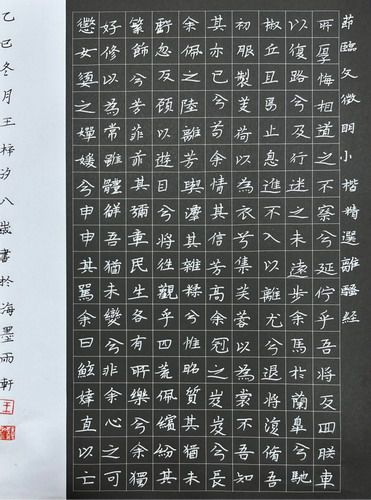 節臨文徵明小楷精選離騷經
所厚悔相道之不察兮延佇乎吾將反回朕車
以復路兮及行迷之未遠步余馬於蘭皋兮馳
椒丘且焉止息進不入以離尤兮退將復脩吾
初服製芰荷以為衣兮集芙蓉以為裳不吾知
其亦已兮苟余情其信芳高余冠之岌岌兮長
余佩之陸離芳與澤其雜糅兮惟昭質其猶未
虧忽反顧以遊目兮將往觀乎四荒佩繽紛其
繁飾兮芳菲菲其彌章民生各有所樂兮余獨
好修以為常雖體解吾猶未變兮非余心之可
懲女嬃之嬋媛兮申申其詈余曰鮌婞直以亡
乙巳冬月王梓汐八歲書於海墨雨軒
王